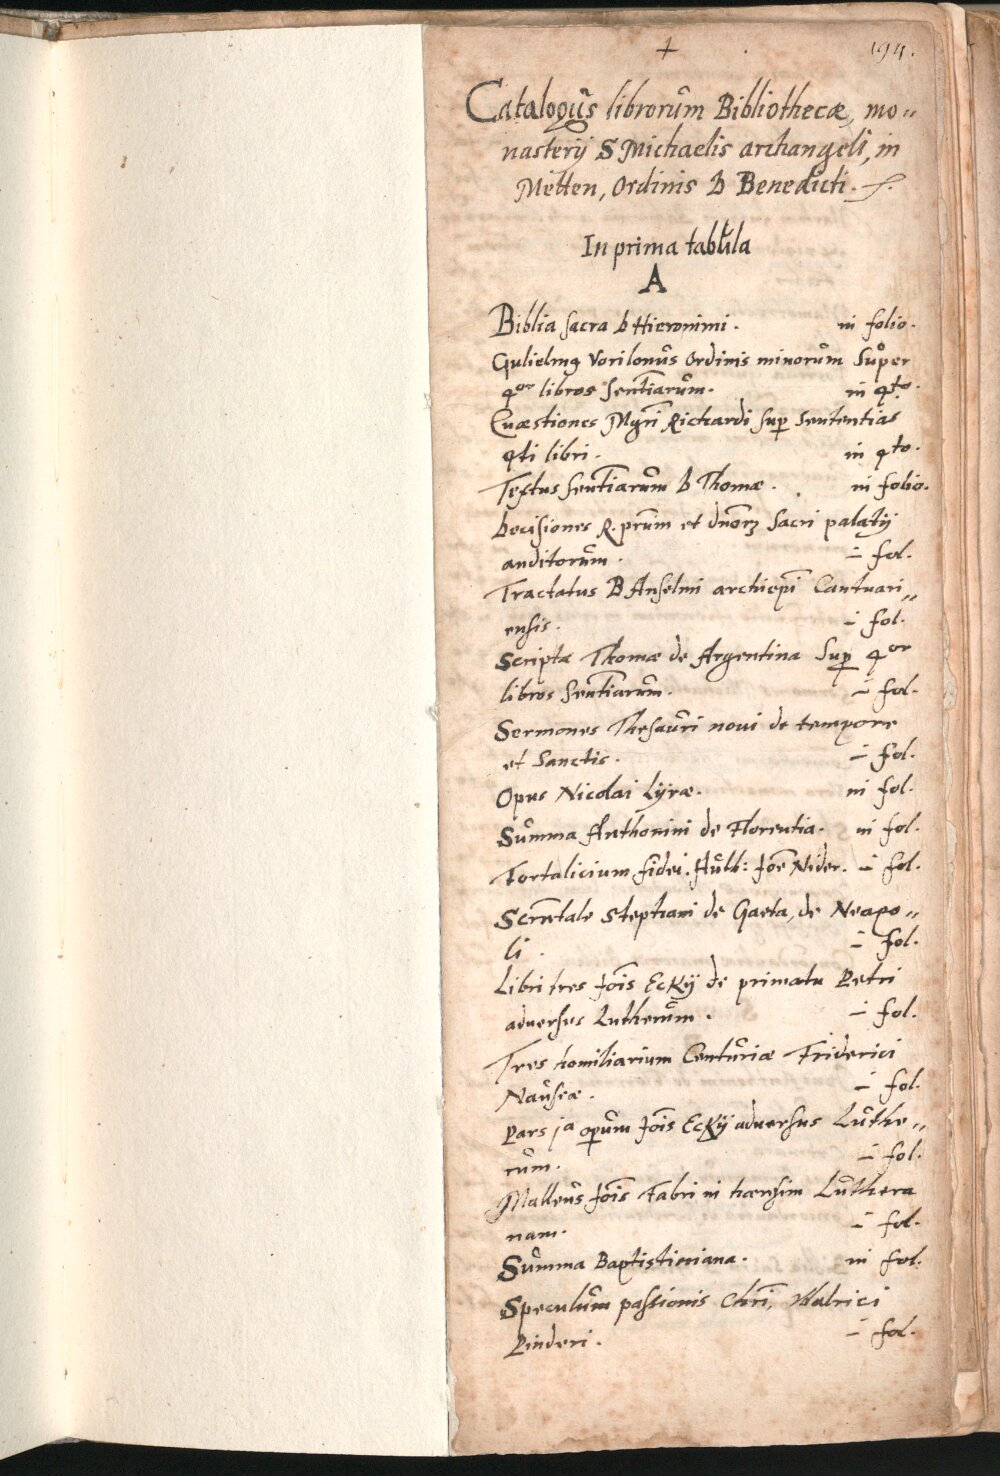 +
194.
Catalogus librorum Bibliothecæ, mo〃
nasterij S Michaelis archangeli, in
Metten, Ordinis B Benedicti.
In prima tabula
A
Biblia sacra b Hieronimi. in folio.
Gulielmꝰ Vorilonus Ordinis minorum super
4or libros Senti͞arum. in 4to.
Quæstiones Mgri͞ Richardi sup͞ Sententias
4ti libri. in 4to.
Textus Senti͞arum b Thomæ. in folio.
Decisiones R. pr͞um et dn͞orꝫ Sacri palatij
auditorum. i͞ fol.
Tractatus B Anselmi archiep͞i Cantuari〃
ensis. i͞ fol.
Scripta Thomæ de Argentina Sup͞ 4or
libros Senti͞arum. i͞ fol.
Sermones Thesauri noui de tempore
et Sanctis. i͞ fol.
Opus Nicolai Lÿræ. in fol.
Summa Anthonini de Florentia. in fol.
Fortalicium fidei. Auth: Joe͞ Nider. i͞ fol.
Scrm͞entale Stephani de Gaeta, de Neapo〃
li. i͞ fol.
Libri tres Joi͞s Eckÿ de primatu Petri
aduersus Lutherum. i͞ fol.
Tres homiliarium Centuriæ Friderici
Nauseæ. i͞ fol.
Pars ja operum Joi͞s Eckÿ aduersus Luthe〃
rum. i͞ fol.
Malleus Joi͞s Fabri in hæresim Luthera
nam. i͞ fol.
Summa Baptistiniana. in fol.
Speculum passionis Chri͞, Vdalrici
Pinderi. i͞ fol.